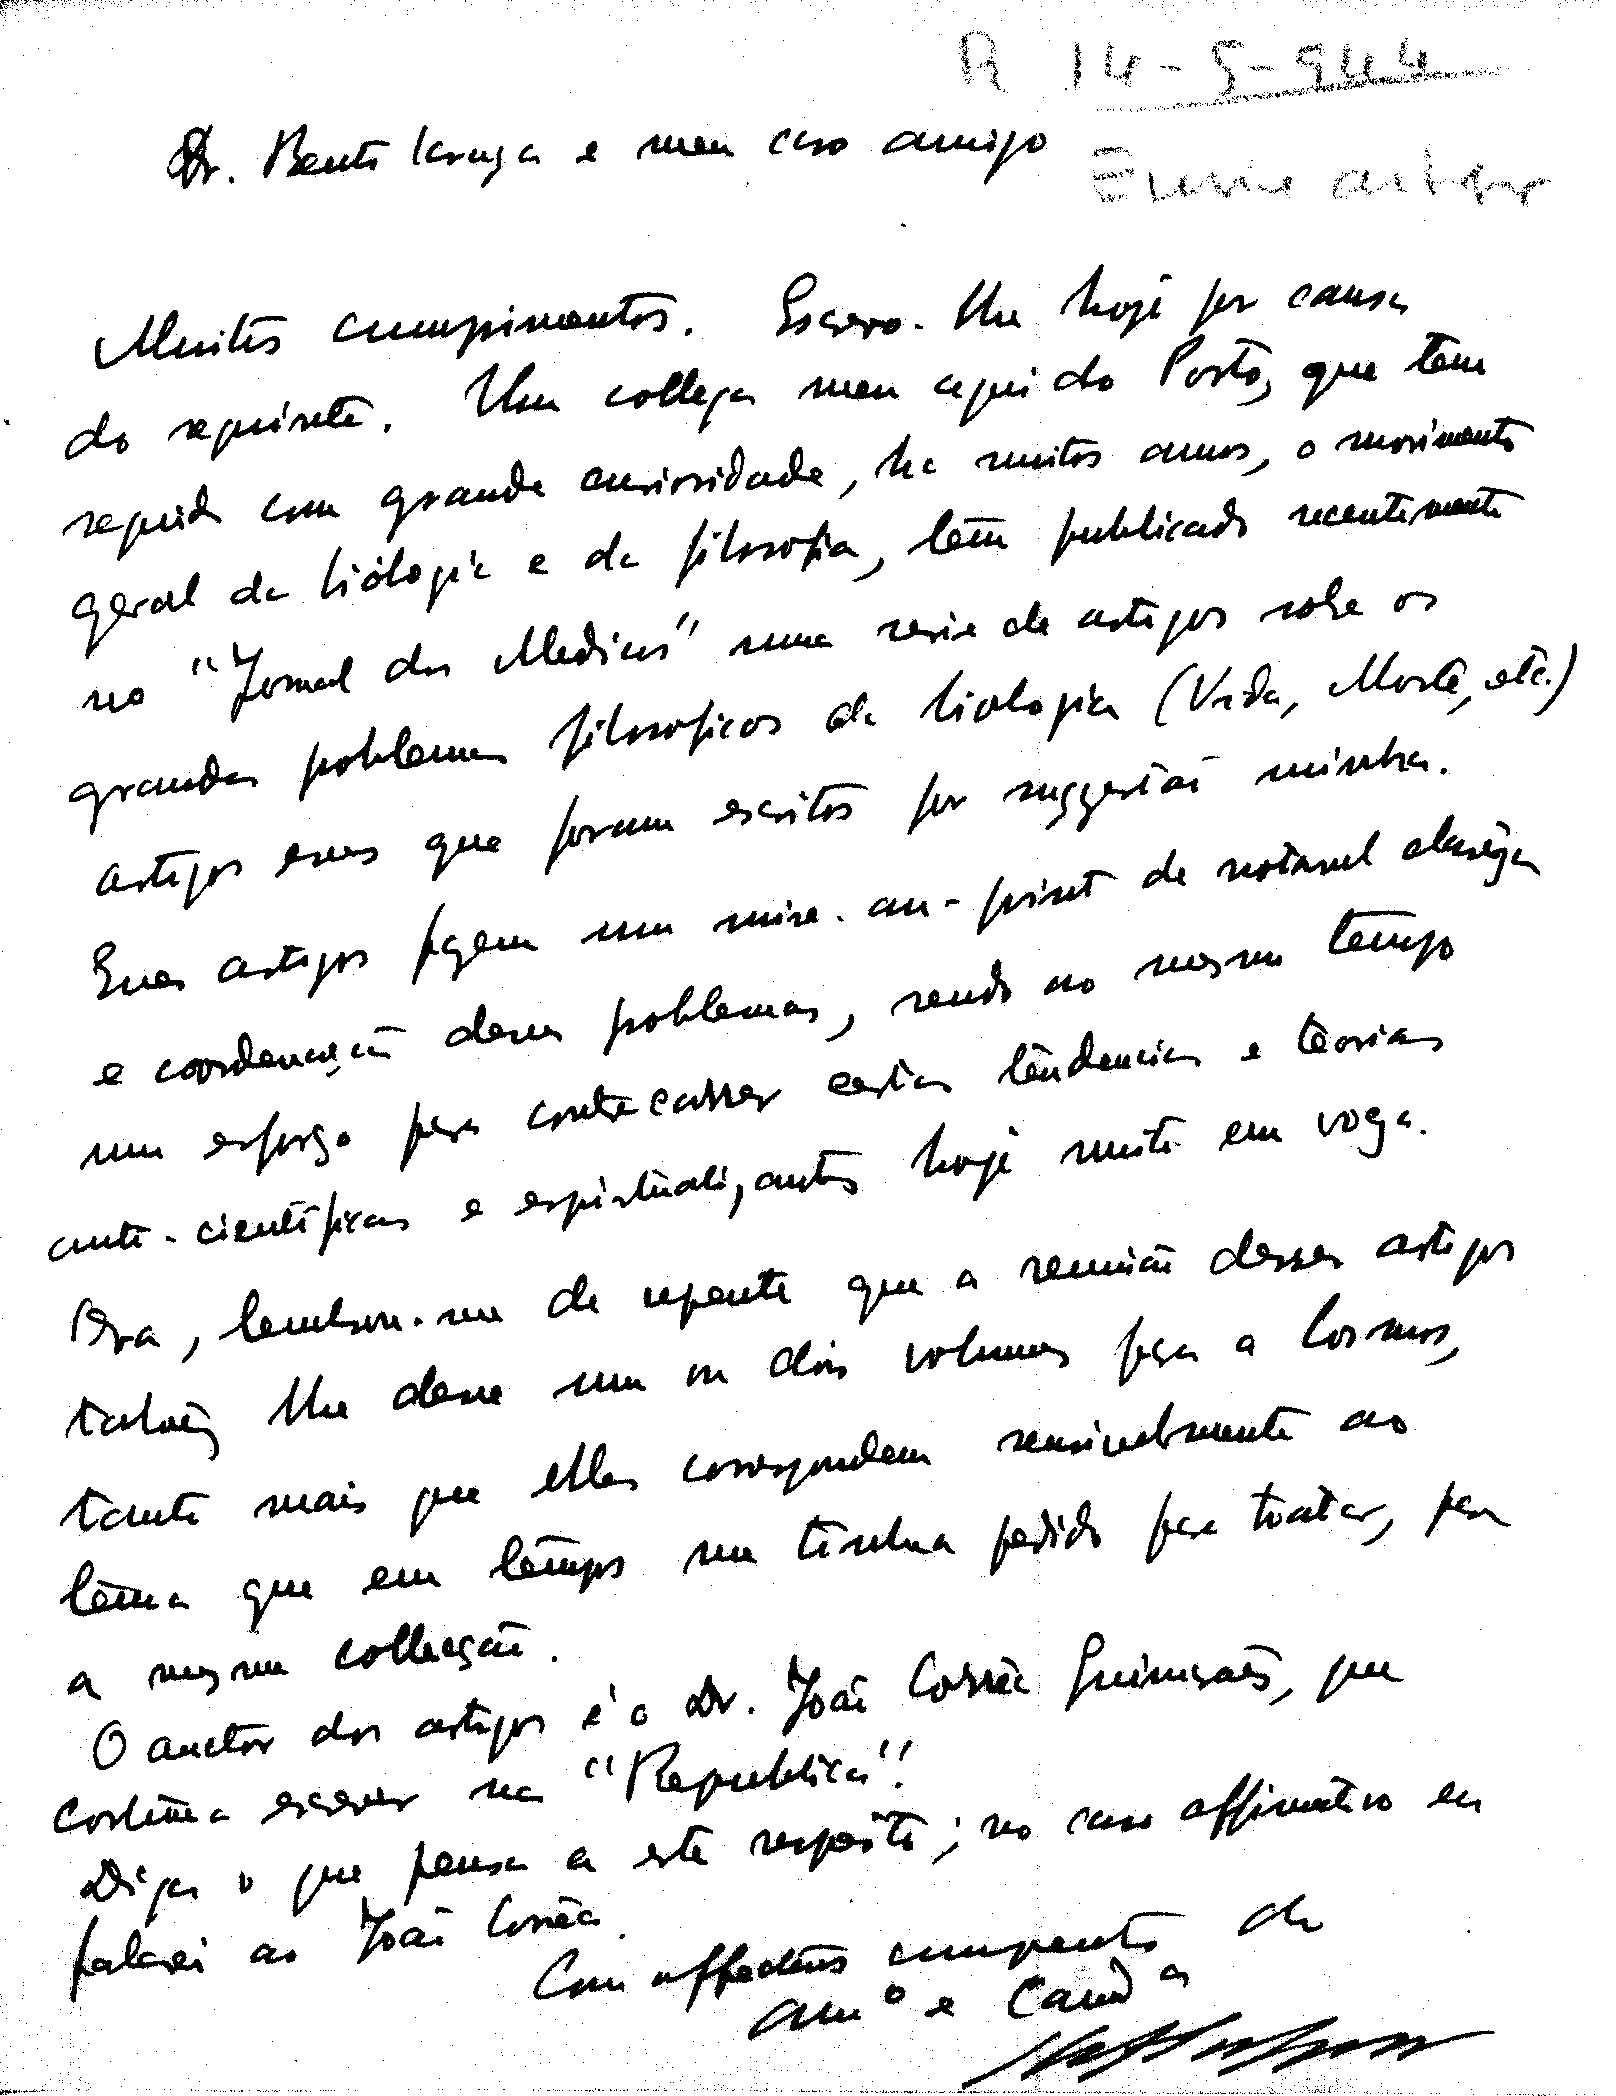 R 14-5-944
Dr. Bento Caraça e meu caro amigo
Envie artigos
Muitos cumprimentos. Escrevo-lhe hoje por causa
do seguinte. Um collega meu aqui do Porto, que tem
seguido com grande curiosidade, ha muitos annos, o movimento
geral da biologia e da filosofia, tem publicado recentemente
no "Jornal dos Medicos" uma serie de artigos sobre os
grandes problemas filosoficos da biologia (Vida, Morte, etc.)
artigos esses que foram escritos por suggestão minha.
Esses artigos fazem uma mise-au-point de notavel clareza
e coordenação desses problemas, sendo ao mesmo tempo
um esforço para contrecarrer certas tendencias e teorias
anti-cientificas e espiritualizantes hoje muito em voga.
Ora, lembrou-me de repente que a reunião desses artigos
talvez lhe desse um ou dois volumes para a Cosmos,
tanto mais que elles correspondem sensivelmente ao
tema que em tempos me tinha pedido para tratar, para
a mesma collecção.
O auctor dos artigos é o Dr. João Corrêa Guimarães, que
costuma escrever na "Republica".
Diga o que pensa a este respeito; no caso affirmativo eu
falarei ao João Corrêa.
Com affectuosos cumprimentos de
amº e camdª